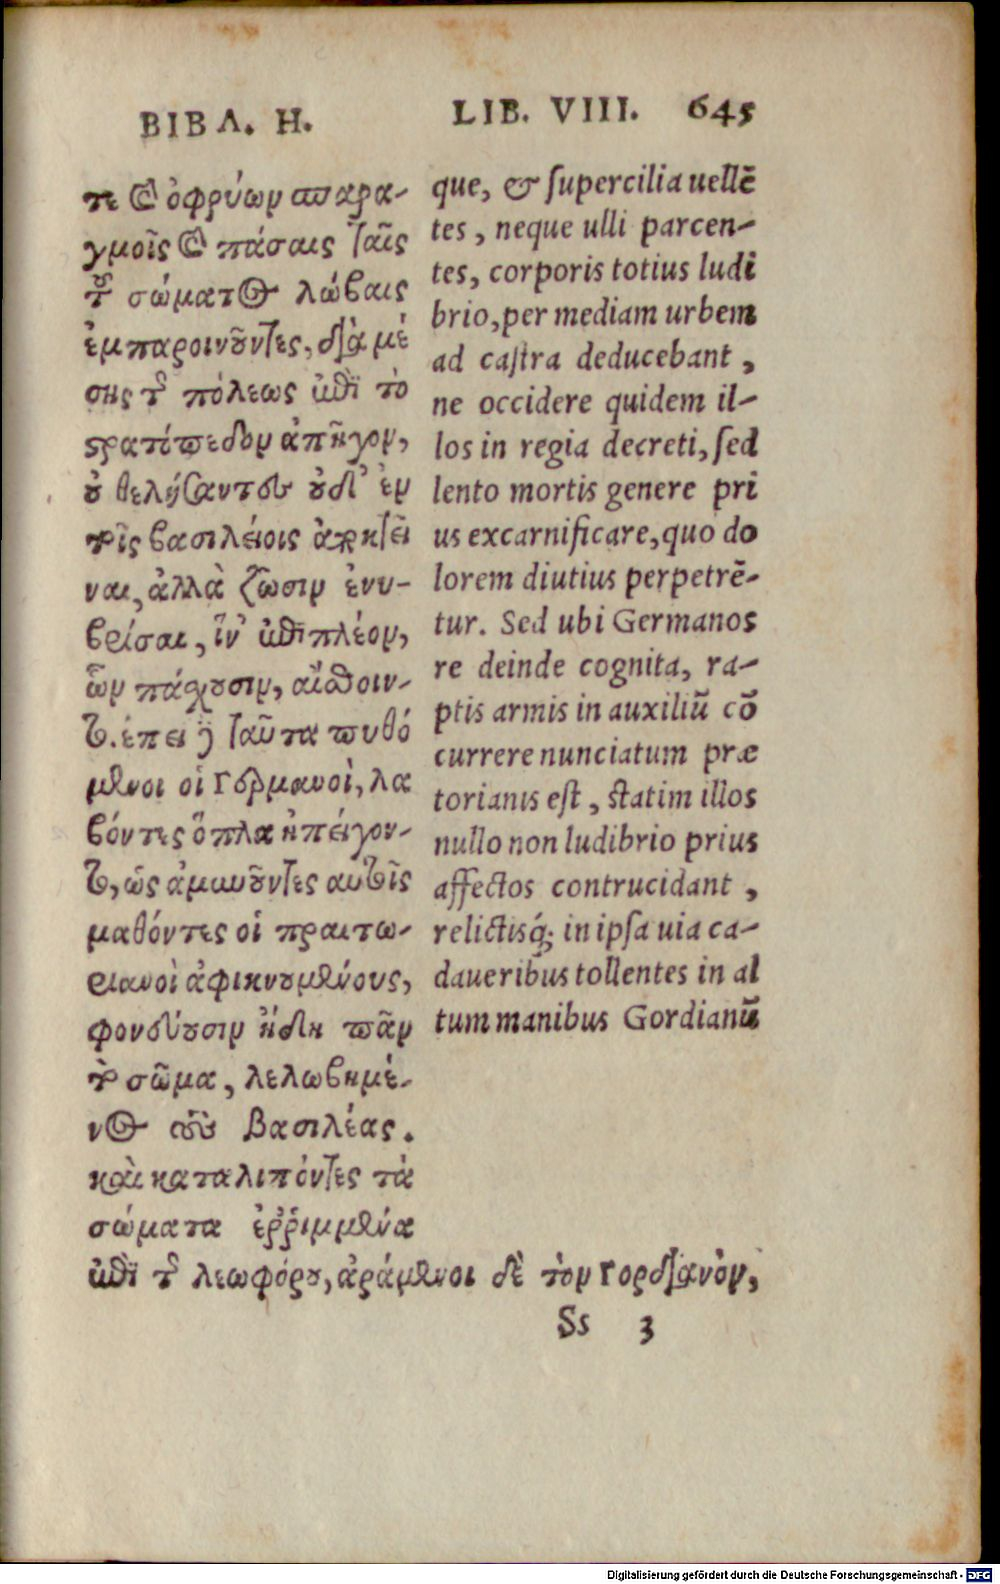 ΒΙΒΛ. Η.
τε καὶ ὀφρύων σπαρα-
γμοῖς καὶ πάσαις ταῖς
τοῦ σώματος λώβαις
ἐμπαροινοῦντες, διὰ μέ
σης τῆς πόλεως ἐπὶ τὸ
στρατόπεδον ἀπῆγον,
οὐ θελήσαντες οὐδ' ἐν
τοῖς βασιλείοις ἀποκτεῖ
ναι, ἀλλὰ ζῶσιν ἐνυ-
βρίσαι, ἵν' ἐπιπλέον,
ὧν πάσχουσιν, αἴσθοιν-
το. ἐπεὶ δὲ ταῦτα πυθό
μενοι οἱ Γερμανοὶ, λα
βόντες ὅπλα ἠπείγον-
το, ὡς ἀμυνοῦντες αὐτοῖς
μαθόντες οἱ πραιτω-
ριανοὶ ἀφικνουμένους,
φονεύουσιν ἤδη πᾶν
τὸ σῶμα, λελωβημέ-
νους τοὺς βασιλέας.
καὶ καταλιπόντες τὰ
σώματα ἐῤῥιμμένα
ἐπὶ τῆς λεωφόρου, ἀράμενοι δὲ τὸν Γορδιανὸν,
LIB. VIII. 645
que, & supercilia uellē
tes, neque ulli parcen-
tes, corporis totius ludi
brio, per mediam urbem
ad castra deducebant,
ne occidere quidem il-
los in regia decreti, sed
lento mortis genere pri
us excarnificare, quo do
lorem diutius perpetrē-
tur. Sed ubi Germanos
re deinde cognita, ra-
ptis armis in auxiliū cō
currere nunciatum præ
torianis est, statim illos
nullo non ludibrio prius
affectos contrucidant,
relictisq́; in ipsa uia ca-
daueribus tollentes in al
tum manibus Gordianū
Ss 3
Digitalisierung gefördert durch die Deutsche Forschungsgemeinschaft - DFG